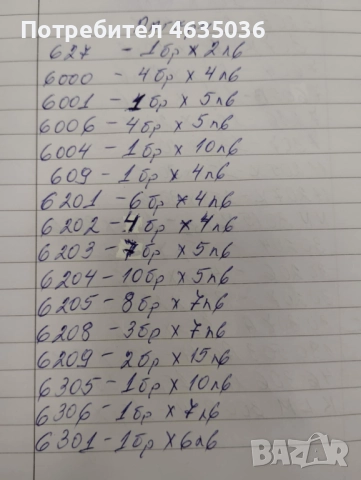 Потребител 4635036
627 - 1бр x 2лв
6000 - 4бр x 4лв
6001 - 1бр x 5лв
6006 - 4бр x 5лв
6004 - 1бр x 10лв
609 - 1бр x 4лв
6201 - 6бр x 4лв
6202 - 4бр x 4лв
6203 - 7бр x 5лв
6204 - 10бр x 5лв
6205 - 8бр x 7лв
6208 - 3бр x 7лв
6209 - 2бр x 15лв
6305 - 1бр x 10лв
6306 - 1бр x 7лв
6301 - 1бр x 6лв
BAZAR